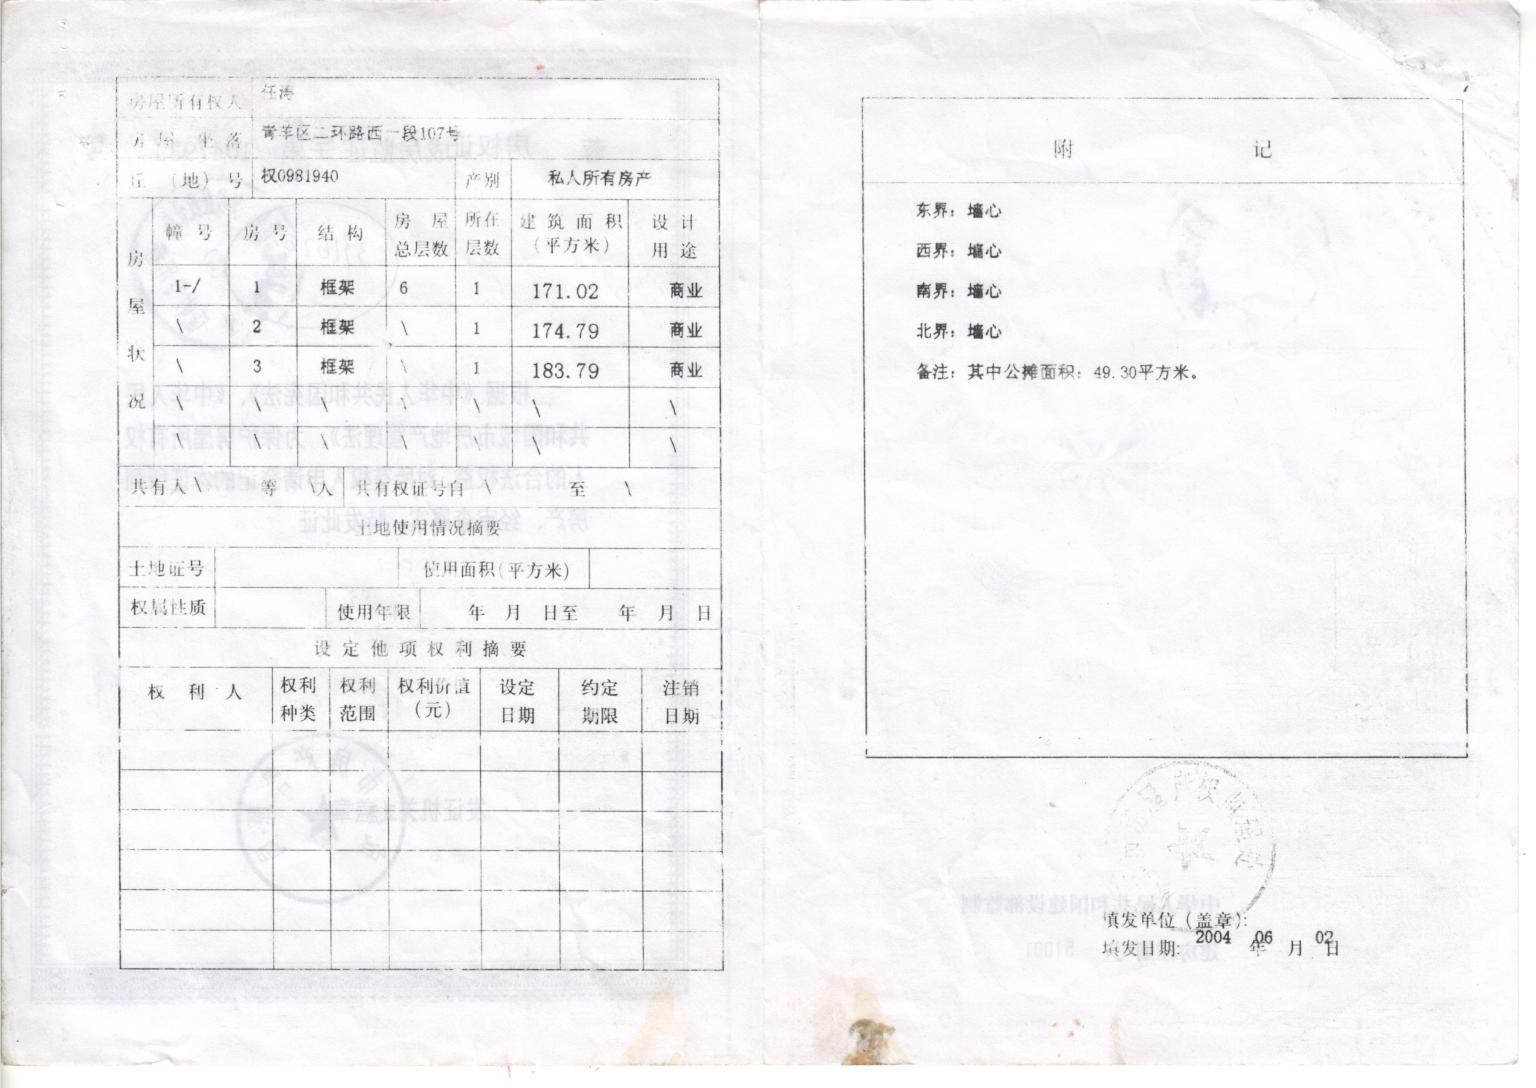 房屋所有权人 任涛
房屋坐落 青羊区二环路西一段107号
丘（地）号 权0981940 产别 私人所有房产
房屋状况 幢号 房号 结构 房屋总层数 所在层数 建筑面积（平方米） 设计用途
1-/ 1 框架 6 1 171.02 商业
\ 2 框架 \ 1 174.79 商业
\ 3 框架 \ 1 183.79 商业
\ \ \ \ \ \ \
\ \ \ \ \ \ \
共有人 \ 等 \人 共有权证号自 \ 至 \
土地使用情况摘要
土地证号 使用面积(平方米)
权属性质 使用年限 年 月 日至 年 月 日
设定他项权利摘要
权利人 权利种类 权利范围 权利价值(元) 设定日期 约定期限 注销日期
附 记
东界：墙心
西界：墙心
南界：墙心
北界：墙心
备注：其中公摊面积：49.30平方米。
填发单位（盖章）：
填发日期: 2004 年 06 月 02 日